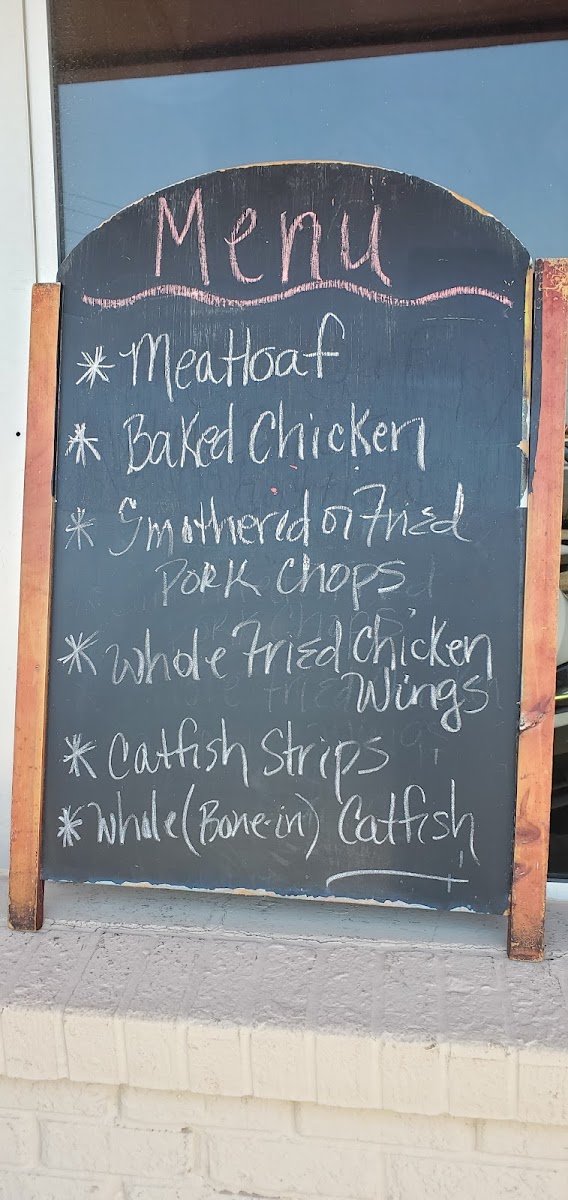 Menu
* Meatloaf
* Baked Chicken
* Smothered or Fried
Pork Chops
* Whole Fried Chicken
Wings
* Catfish Strips
* Whole (Bone-in) Catfish